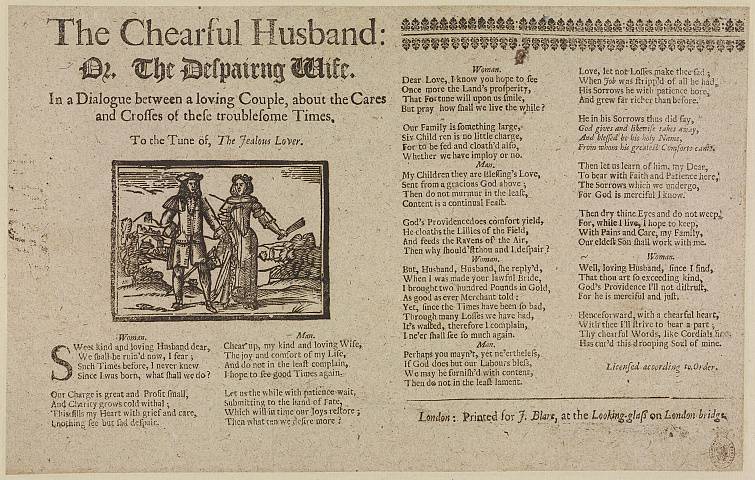 The Chearful Husband:
Or, The Despairng Wife.
In a Dialogue between a loving Couple, about the Cares
and Crosses of these troublesome Times.
To the Tune of, The Jealous Lover.
Woman.
SWeet kind and loving Husband dear,
We shall be ruin'd now, I fear;
Such Times before, I never knew
Since I was born, what shall we do?
Our Charge is great and Profit small,
And Charity grows cold withal;
This fills my Heart with grief and care,
I nothing see but sad despair.
Man.
Chear up, my kind and loving Wife,
The joy and comfort of my Life,
And do not in the least complain,
I hope to see good Times again.
Let us the while with patience wait,
Submitting to the hand of Fate,
Which will in time our Joys restore;
Then what can we desire more?
Woman.
Dear Love, I know you hope to see
Once more the Land's prosperity,
That Fortune will upon us smile,
But pray how shall we live the while?
Our Family is something large,
Six Children is no little charge,
For to be fed and cloath'd also,
Whether we have imploy or no.
Man.
My Children they are Blessing's Love,
Sent from a gracious God above;
Then do not murmur in the least,
Content is a continual Feast.
God's Providence does comfort yield,
He cloaths the Lillies of the Field,
And feeds the Ravens of the Air,
Then why should'st thou and I despair?
Woman.
But, Husband, Husband, she reply'd,
When I was made your lawful Bride,
I brought two hundred Pounds in Gold,
As good as ever Merchant told:
Yet, since the Times have been so bad,
Through many Losses we have had,
It's wasted, therefore I complain,
I ne'er shall see so much again.
Man.
Perhaps you mayn't, yet ne'ertheless,
If God does but our Labours bless,
We may be furnish'd with content,
Then do not in the least lament.
Love, let not Losses make thee sad;
When Job was stripp'd of all he had,
His Sorrows he with patience bore,
And grew far richer than before.
He in his Sorrows thus did say,
God gives and likewise takes away,
And blessed be his holy Name,
From whom his greatest Comforts came.
Then let us learn of him, my Dear,
To bear with Faith and Patience here,
The Sorrows which we undergo,
For God is merciful I know.
Then dry thine Eyes and do not weep,
For, while I live, I hope to keep,
With Pains and Care, my Family,
Our eldest Son shall work with me.
Woman.
Well, loving Husband, since I find,
That thou art so exceeding kind,
God's Providence I'll not distrust,
For he is merciful and just.
Henceforward, with a chearful heart,
With thee I'll strive to bear a part;
Thy chearful Words, like Cordials fine
Has cur'd this drooping Soul of mine.
Licensed according to Order.
London: Printed for J. Blare, at the Looking-glass on London-bridge.